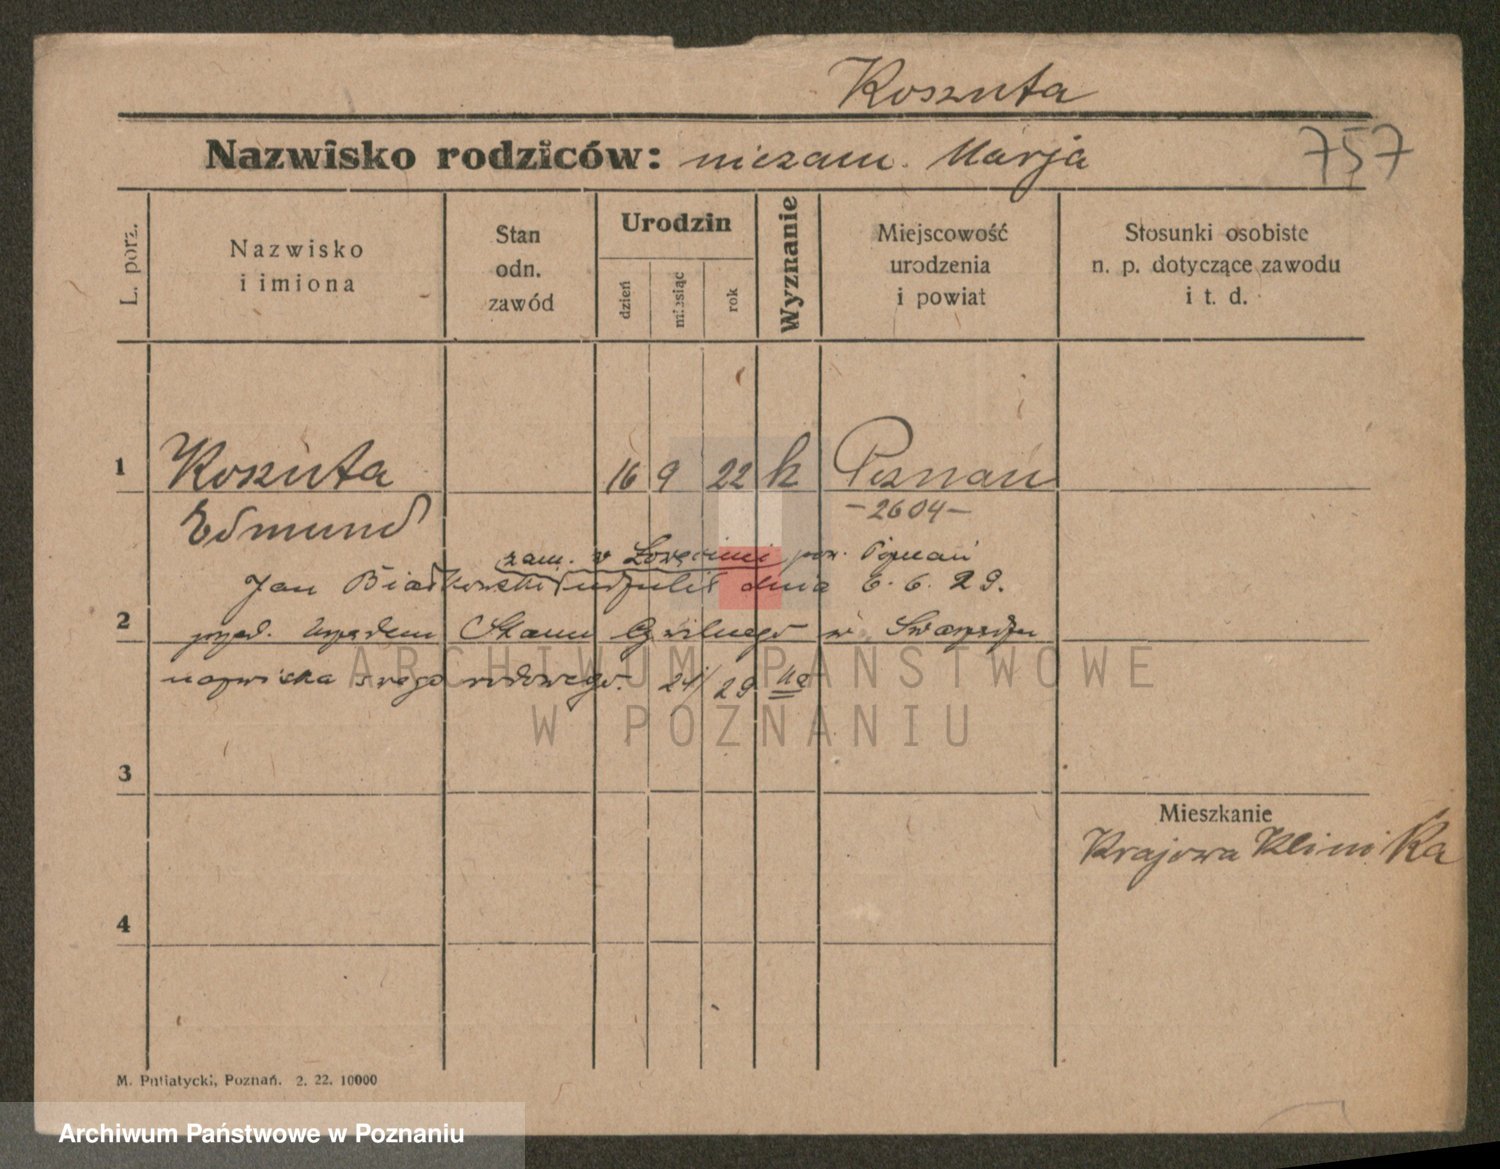 Koszuta
Nazwisko rodziców: niezam. Marja
757
L. porz.
Nazwisko
i imiona
Stan
odn.
zawód
Urodzin
dzień
miesiąc
rok
Wyznanie
Miejscowość
urodzenia
i powiat
Stosunki osobiste
n. p. dotyczące zawodu
i t. d.
1 Koszuta 16 9 22 k Poznań
Edmund -2604-
zam. w pow. Poznań
Jan Białkowski udzielił dnia 6. 6. 29.
2 przed Urzędem Stanu Cywilnego w Swarzędzu
nazwiska swego rodowego. 29
ARCHIWUM PAŃSTWOWE
W POZNANIU
3
Mieszkanie
Krajowa Klinika
4
M. Putiatycki, Poznań. 2. 22. 10000
Archiwum Państwowe w Poznaniu